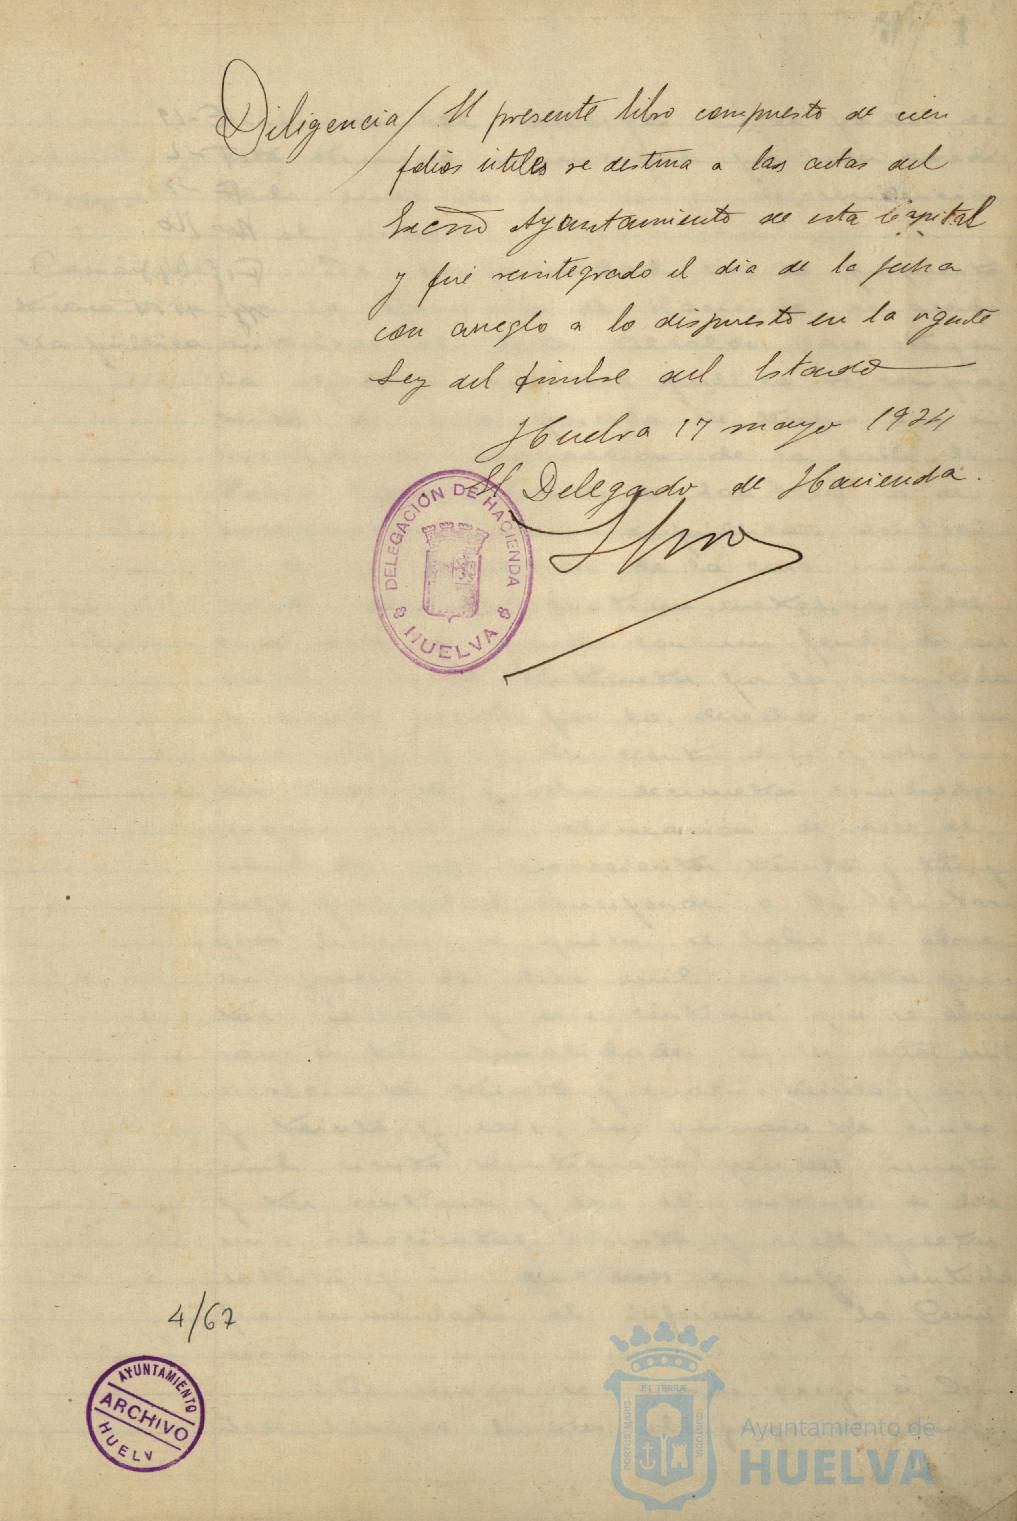 Diligencia / El presente libro compuesto de cien
folios útiles se destina a las actas del
Excmo Ayuntamiento de esta Capital
y fué reintegrado el dia de la fecha
con arreglo a lo dispuesto en la vigente
Ley del timbre del Estado
Huelva 17 mayo 1924
El Delegado de Hacienda.
DELEGACIÓN DE HACIENDA
HUELVA
4/67
AYUNTAMIENTO
ARCHIVO
HUELV
Ayuntamiento de
HUELVA